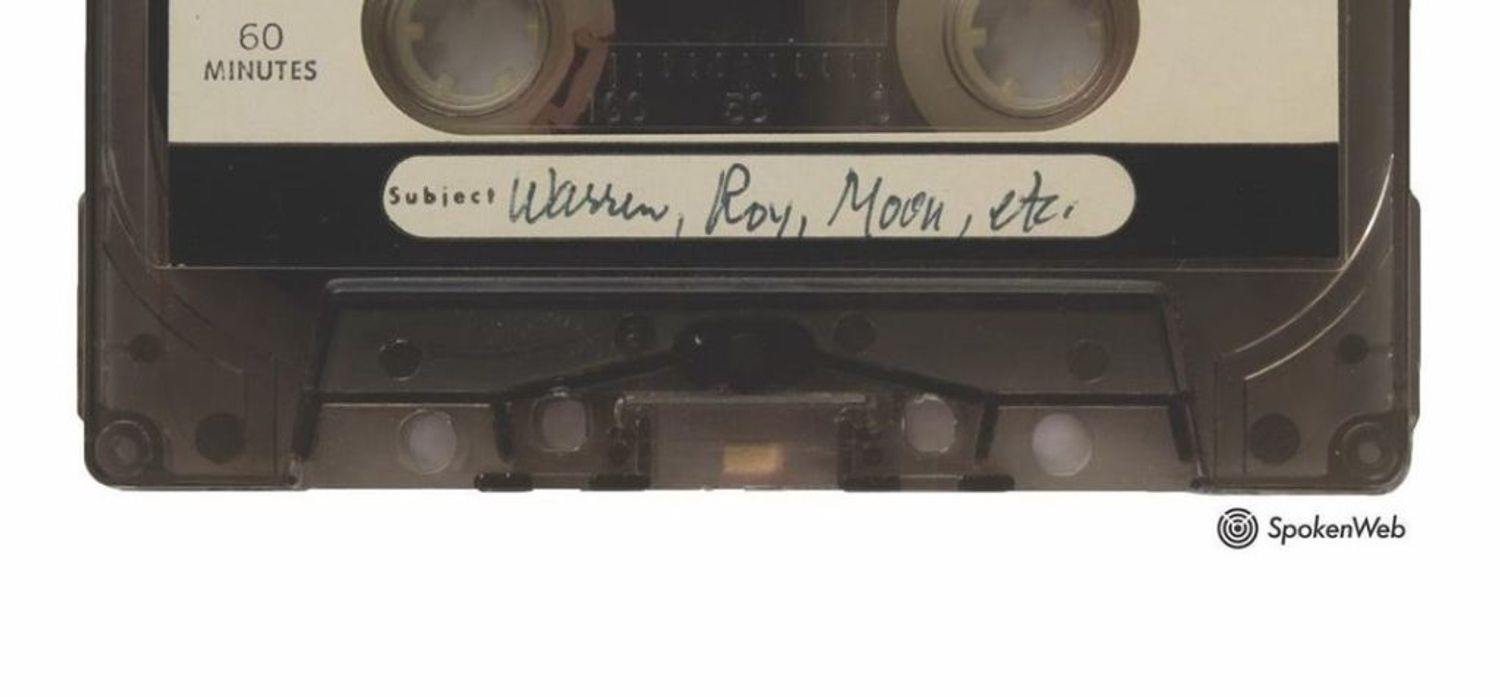 60
MINUTES
100 50 0
Subject Warren, Roy, Moon, etc.
SpokenWeb